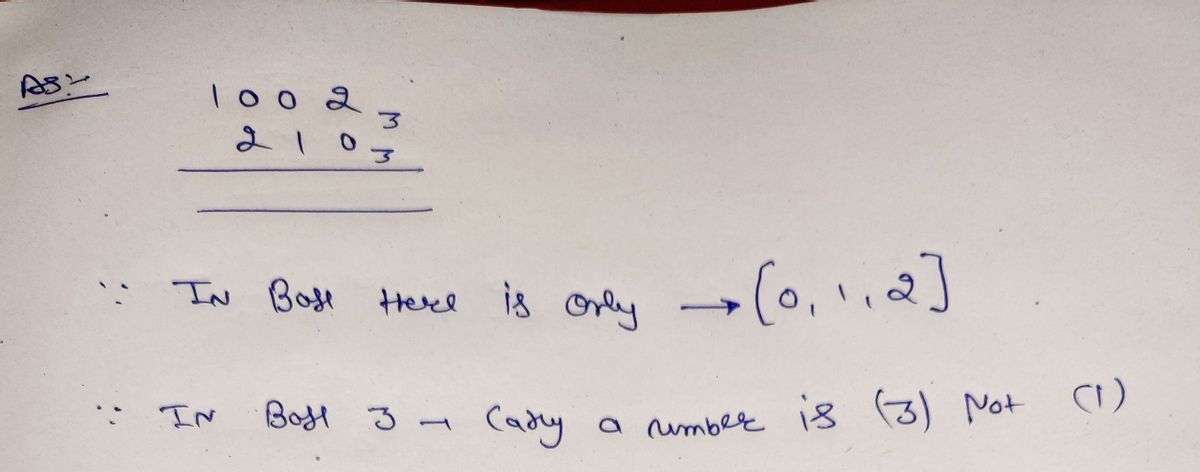 As:-
1 0 0 2 3
2 1 0 3
∵ IN Base Here is only → [0, 1, 2]
∵ IN Base 3 → Carry a number is (3) Not (1)